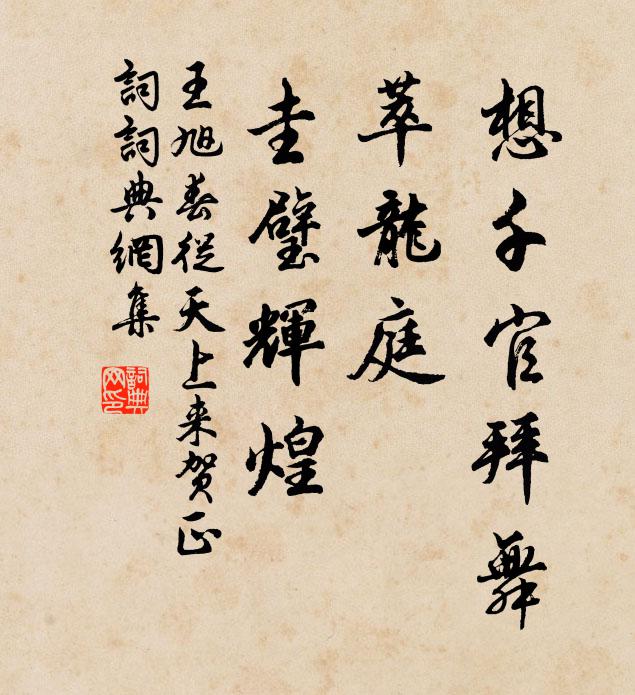 想千官拜舞
萃龍庭
圭璧輝煌
王旭春從天上来賀正
詞詞典網集
詞典
网印